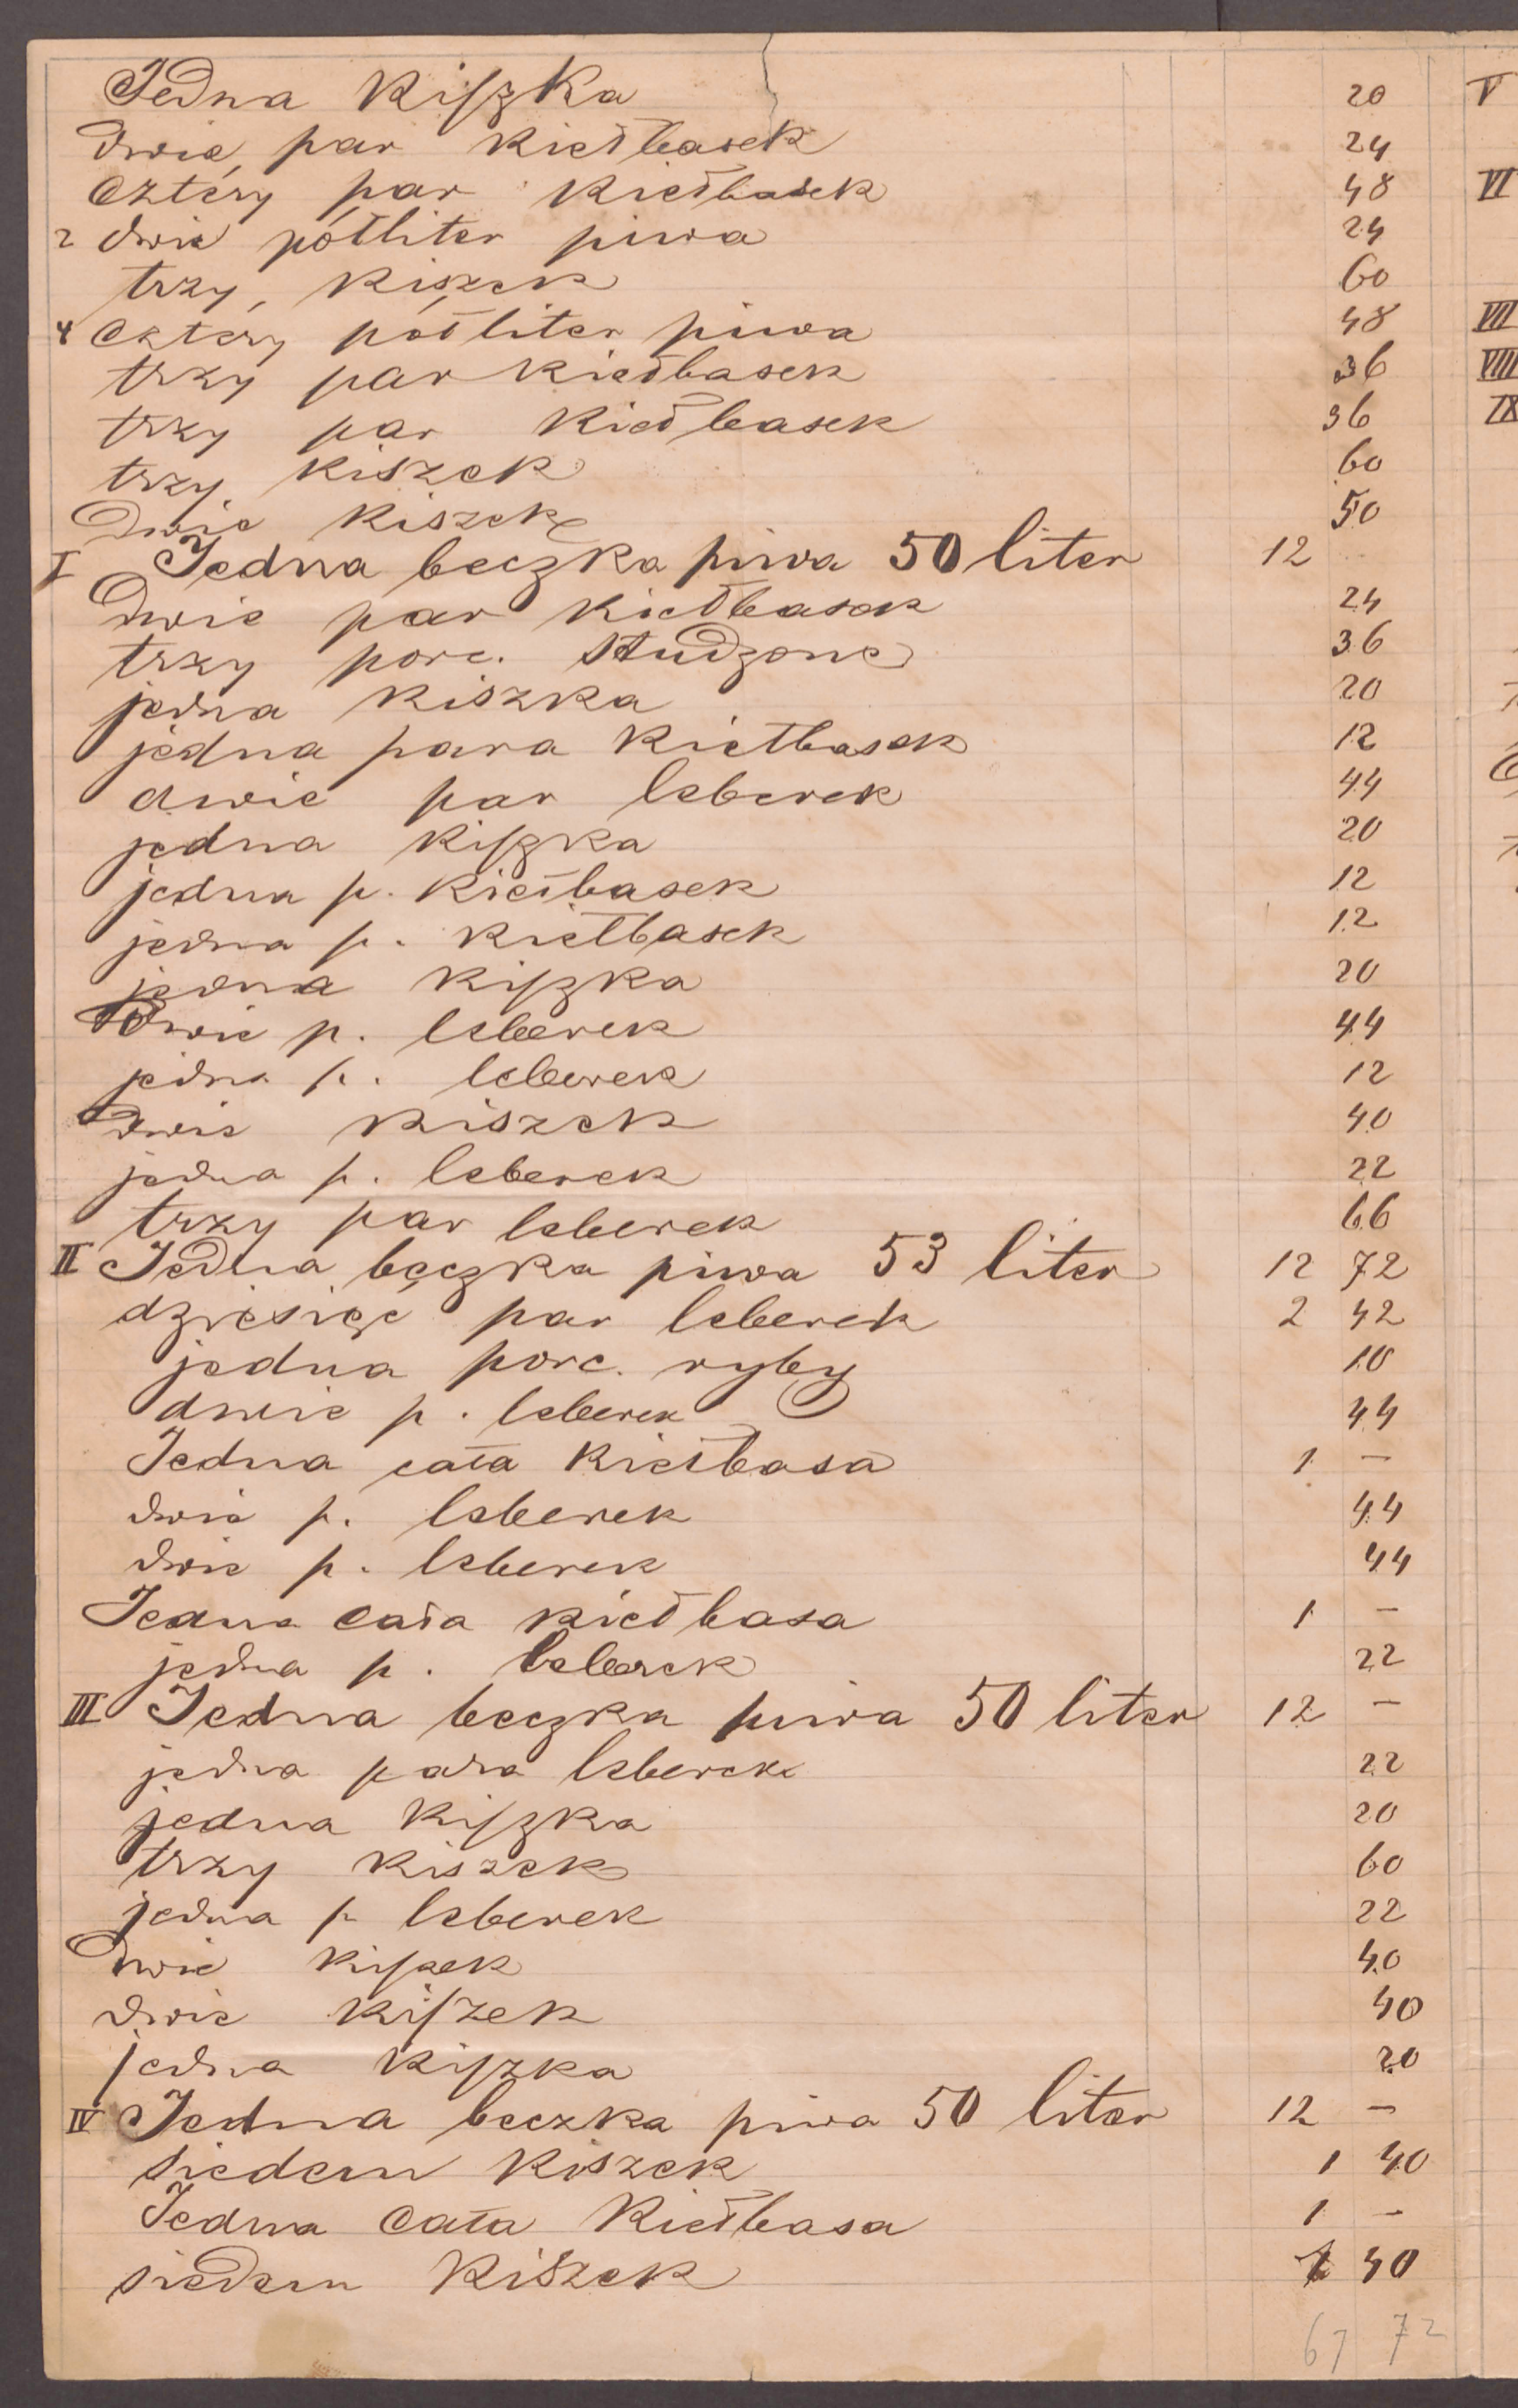 Jedna Kiszka 20 V
dwie par kiełbasek 24
Cztery par kiełbasek 48 VI
2 dwie półliter piwa 24
trzy, kiszek 60
4 cztery półliter piwa 48 VII
trzy par kiełbasek 36 VIII
trzy par kiełbasek 36 IX
trzy kiszek 60
Dwie kiszek 50
I Jedna beczka piwa 50 liter 12
Dwie par kiełbasek 24
trzy porc. studzone 36
jedna kiszka 20
jedna para kiełbasek 12
dwie par leberek 44
jedna kiszka 20
jedna p. kiełbasek 12
jedna p. kiełbasek 12
jedna kiszka 20
Dwie p. leberek 44
jedna p. leberek 12
Dwie kiszek 40
jedna p. leberek 22
trzy par leberek 66
II Jedna beczka piwa 53 liter 12 72
dziesięć par leberek 2 42
jedna porc. ryby 10
dwie p. leberek 44
Jedna cała kiełbasa 1 —
dwie p. leberek 44
dwie p. leberek 44
Jedna cała kiełbasa 1 —
jedna p. leberek 22
III Jedna beczka piwa 50 liter 12 —
jedna para leberek 22
jedna kiszka 20
trzy kiszek 60
jedna p leberek 22
Dwie kiszek 40
dwie kiszek 40
jedna kiszka 20
IV Jedna beczka piwa 50 liter 12 —
siedem kiszek 1 40
Jedna cała kiełbasa 1 —
siedem kiszek 1 40
67 72